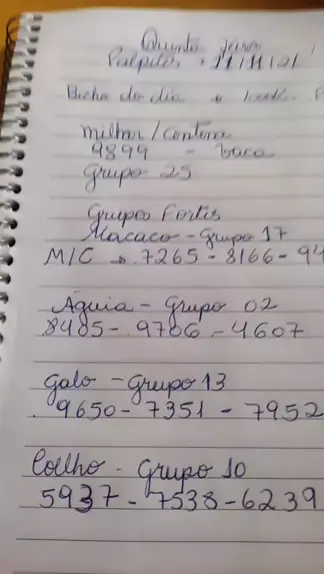 Quinta feira
Palpites 11/11/21
Bicho do dia
milhar/centena
9899 - vaca
Grupo 25
Grupos Fortes
Macaco - Grupo 17
M/C → 7265 - 8166 - 94
Águia - Grupo 02
8405 - 9706 - 4607
Galo - Grupo 13
9650 - 7351 - 7952
Coelho - Grupo 10
5937 - 7538 - 6239